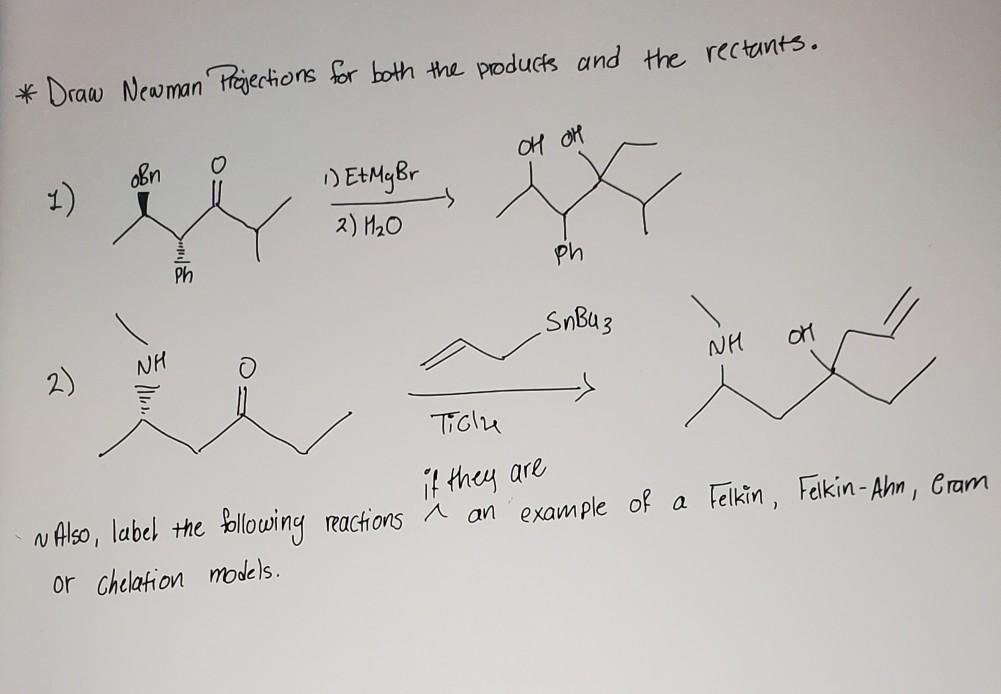 * Draw Newman Projections for both the products and the rectants.
1)
OBn
O
Ph
1) EtMgBr
2) H₂O
OH OH
Ph
2)
NH
O
SnBu3
TiCl4
NH
OH
if they are
~ Also, label the following reactions ^ an example of a Felkin, Felkin-Ahn, Cram
or chelation models.